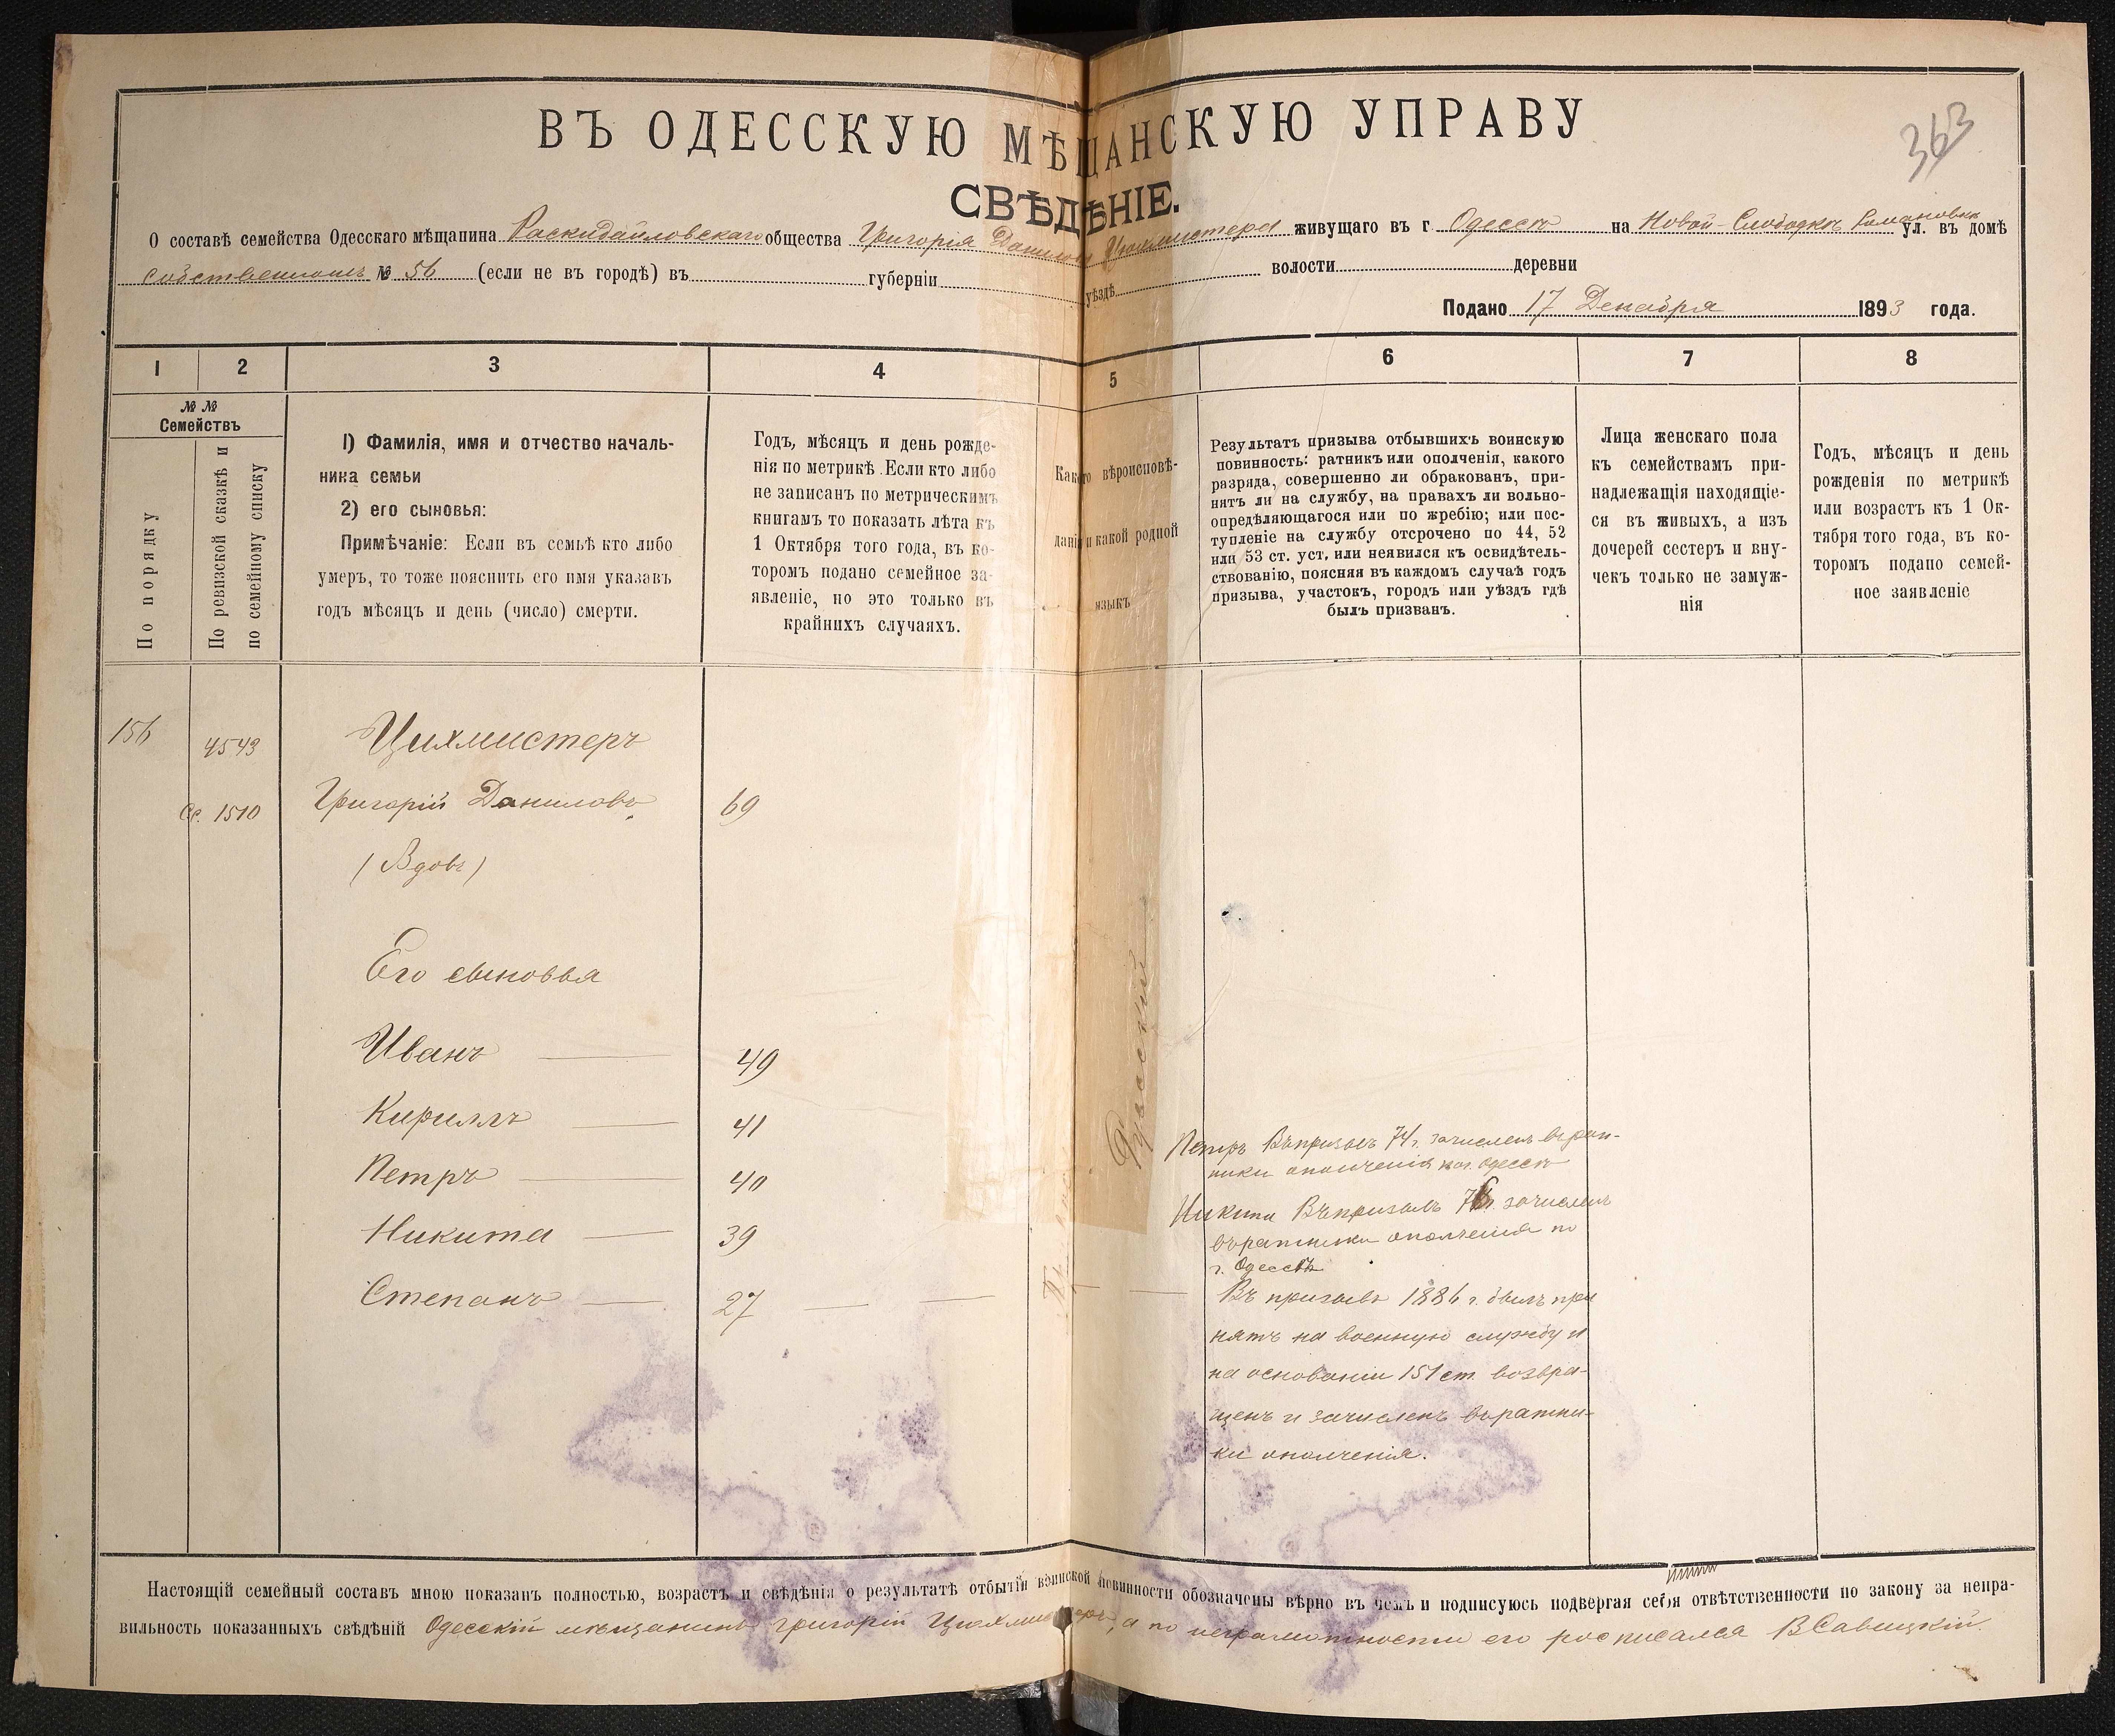 363
ВЪ ОДЕССКУЮ МѢЩАНСКУЮ УПРАВУ
СВѢДѢНІЕ.
О составѣ семейства Одесскаго мѣщанина Раскидайловскаго общества Григорія Данилова Цихмистера живущаго въ г Одессѣ на Новой-Слободкѣ Романовка ул. въ домѣ
собственномъ № 56 (если не въ городѣ) въ губерніи уѣздѣ волости деревни
Подано 17 Декабря 1893 года.
1 2 3 4 5 6 7 8
№ №
Семействъ
По порядку
По ревизской сказкѣ и
по семейному списку
1) Фамилія, имя и отчество началь-
ника семьи
2) его сыновья:
Примѣчаніе: Если въ семьѣ кто либо
умеръ, то тоже пояснить его имя указавъ
годъ мѣсяцъ и день (число) смерти.
Годъ, мѣсяцъ и день рожде-
нія по метрикѣ. Если кто либо
не записанъ по метрическимъ
книгамъ то показать лѣта къ
1 Октября того года, въ ко-
торомъ подано семейное за-
явленіе, но это только въ
крайнихъ случаяхъ.
Какого вѣроисповѣ-
данія и какой родной
языкъ
Результатъ призыва отбывшихъ воинскую
повинность: ратникъ или ополченія, какого
разряда, совершенно ли обракованъ, при-
нятъ ли на службу, на правахъ ли вольно-
опредѣляющагося или по жребію; или пос-
тупленіе на службу отсрочено по 44, 52
или 53 ст. уст. или неявился къ освидѣтель-
ствованію, поясняя въ каждомъ случаѣ годъ
призыва, участокъ, городъ или уѣздъ гдѣ
былъ призванъ.
Лица женскаго пола
къ семействамъ при-
надлежащія находящіе-
ся въ живыхъ, а изъ
дочерей сестеръ и вну-
чекъ только не замуж-
нія
Годъ, мѣсяцъ и день
рожденія по метрикѣ
или возрастъ къ 1 Ок-
тября того года, въ ко-
торомъ подано семей-
ное заявленіе
156 4543 Цихмистеръ
Сс. 1510 Григорій Даниловъ 69
(Вдовъ)
Его сыновья
Иванъ 49
Кириллъ 41
Петръ 40
Никита 39
Степанъ 27
Русскій
Петръ Въ призывъ 74 г. зачисленъ въ рат-
ники ополченія по г. Одессѣ
Никита Въ призывъ 76 г. зачисленъ
въ ратники ополченія по
г. Одессѣ
Въ призывъ 1886 г. былъ при
нятъ на военную службу и
на основаніи 151 ст. возвра-
щенъ и зачисленъ въ ратни-
ки ополченія.
Настоящій семейный составъ мною показанъ полностью, возрастъ и свѣдѣнія о результатѣ отбытій воинской повинности обозначены вѣрно въ чемъ и подписуюсь подвергая себя отвѣтственности по закону за непра-
вильность показанныхъ свѣдѣній Одесскій мѣщанинъ Григорій Цихмистеръ, а по неграмотности его росписался В Савицкій.